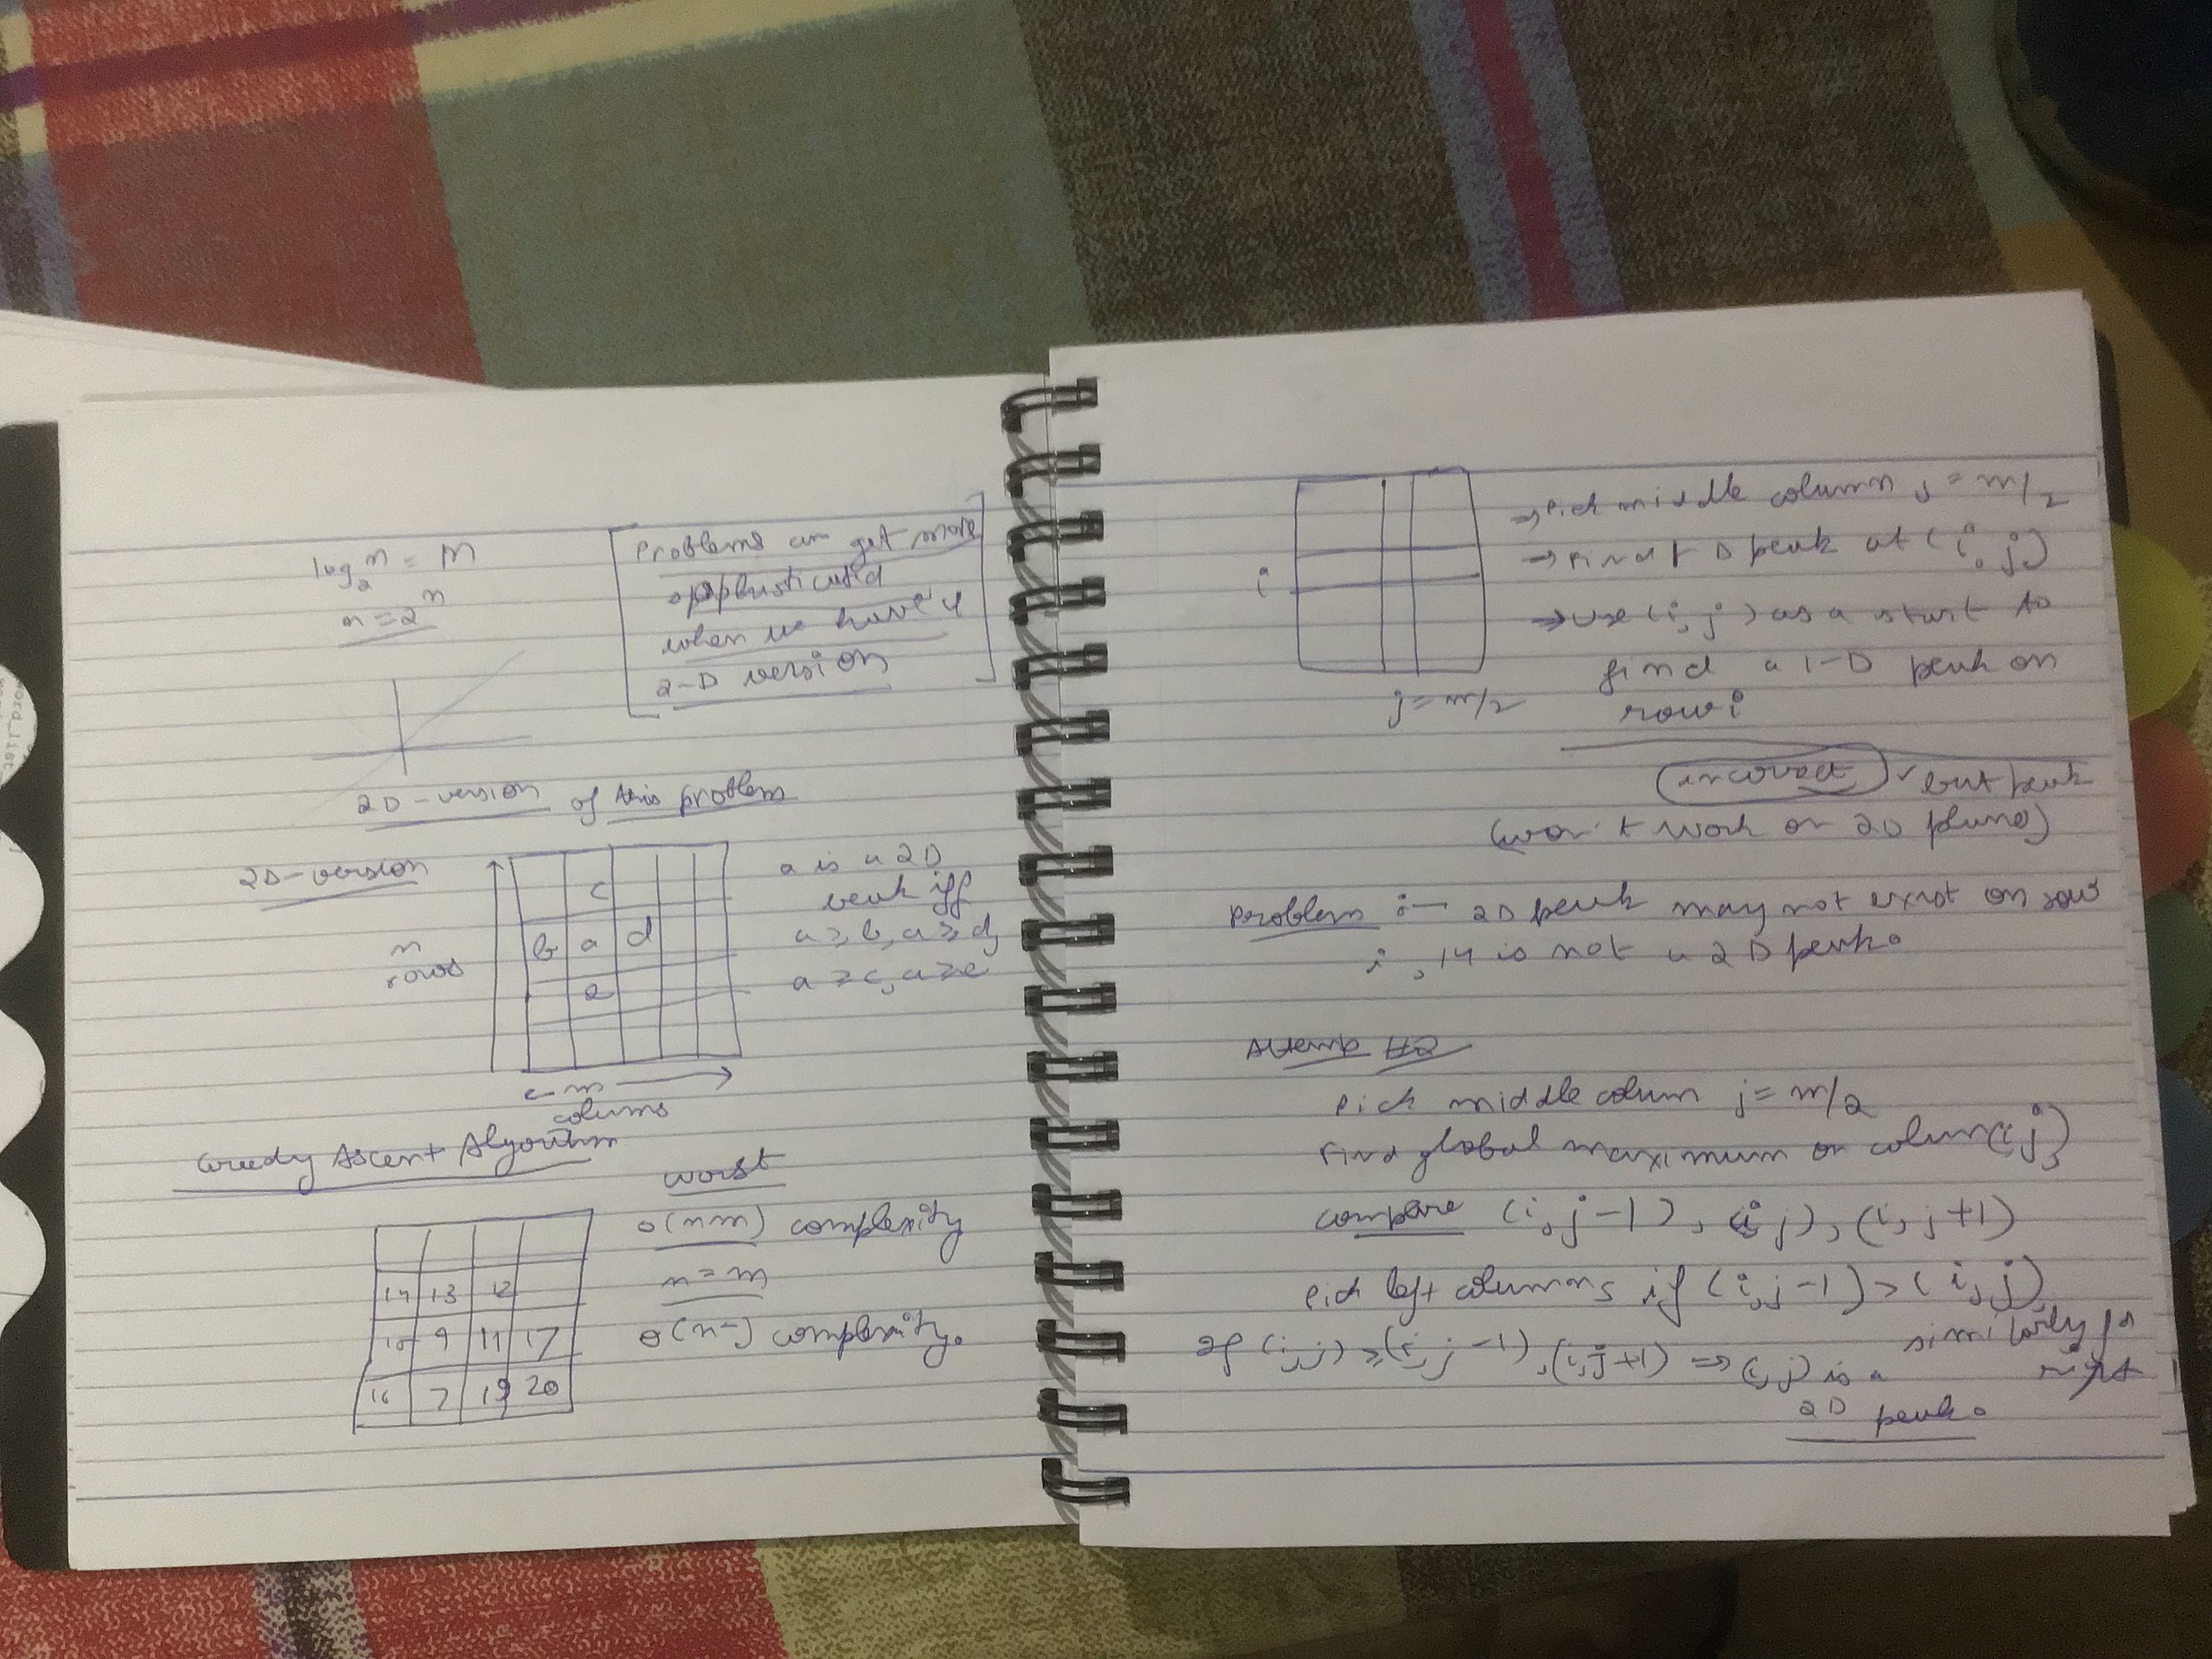 log₂ n = m
n = 2ⁿ
Problems can get more
when we have
2-D version
2D-version of this problem
2D-version
n
rows
c
b a d
e
← m →
colums
a is a 2D
peak iff
a ≥ b, a ≥ d,
a ≥ c, a ≥ e
Greedy Ascent Algorithm
14 13 12
10 9 11 17
16 7 19 20
worst
O(nm) complexity
n = m
complexity.
i
j = m/2
→ Pick middle column j = m/2
→ Find 1 D peak at (i, j)
→ use (i, j) as a start to
find a 1-D peak on
row i
but peak
(won't work on 2D plane)
Problem :- 2D peak may not exist on row
i, 14 is not a 2D peak.
Attemp #2
Pick middle colum j = m/2
Find global maximum on colum(i, j)
compare (i, j-1), (i, j), (i, j+1)
Pick left columns if (i, j-1) > (i, j)
similarly for
right
If (i, j) ≥ (i, j-1), (i, j+1) ⇒ (i, j) is a
2D peak.